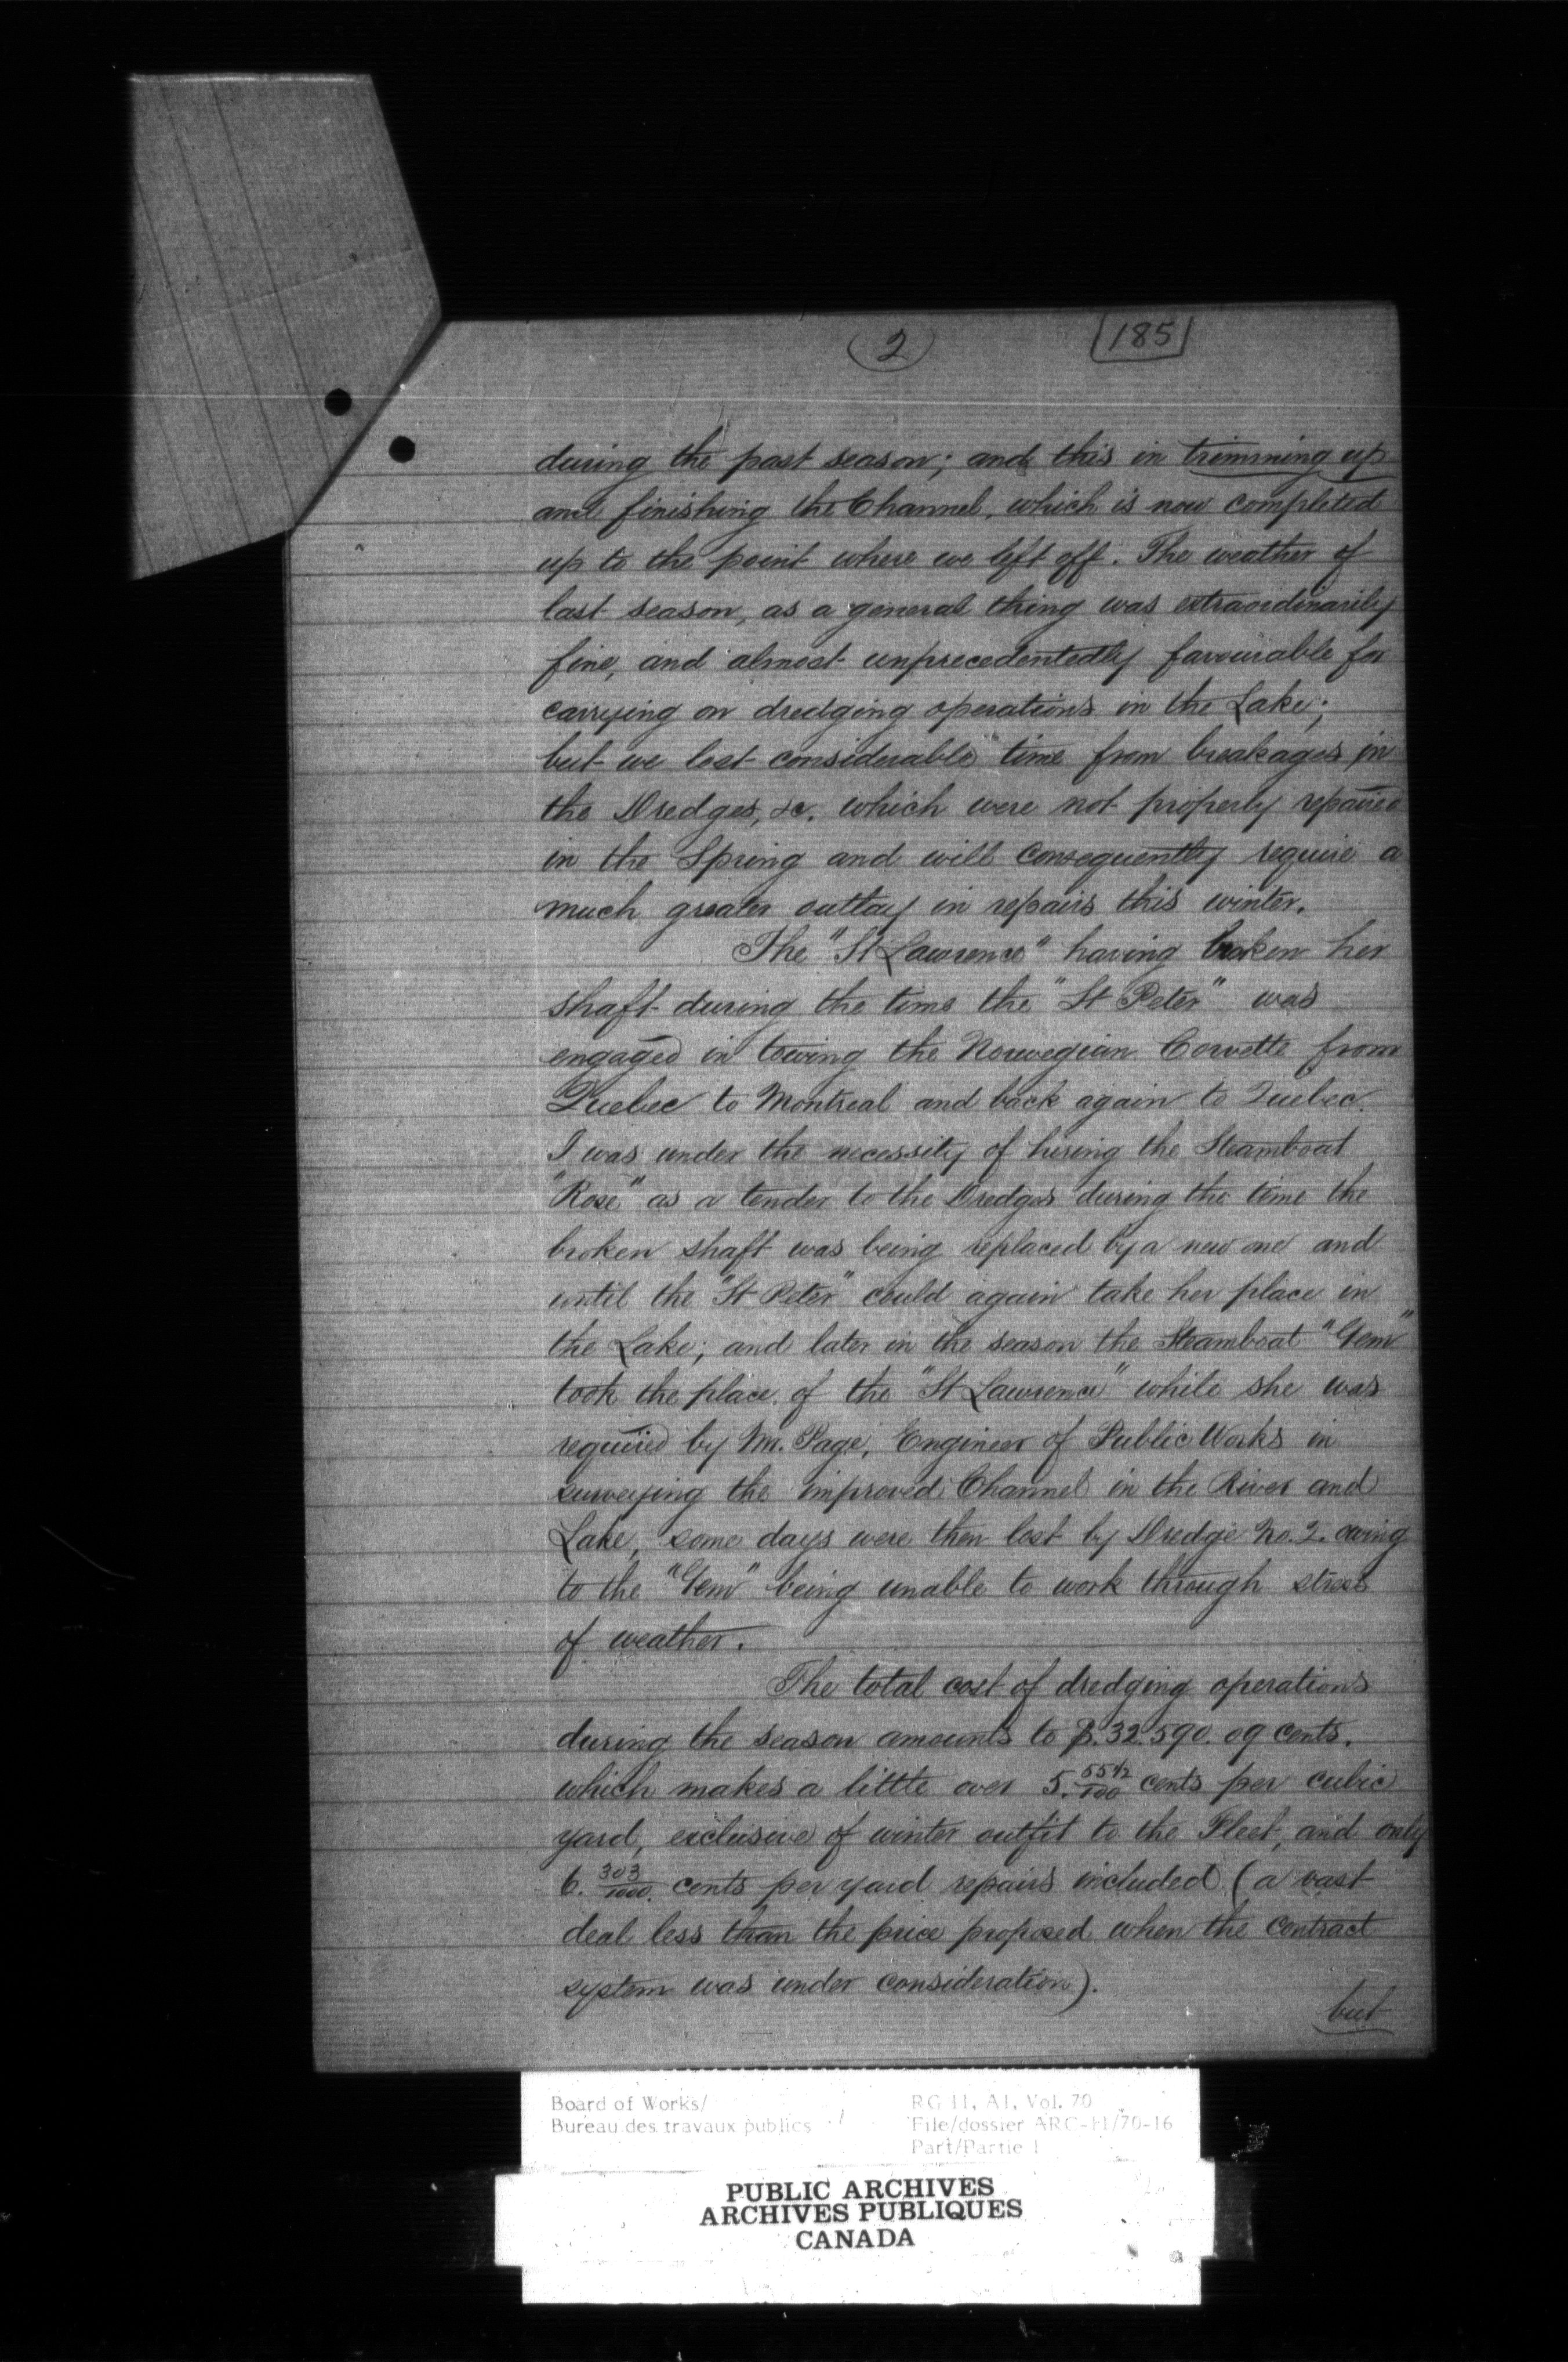 2
185
during the past season; and this in trimming up
and finishing the Channel, which is now completed
up to the point where we left off. The weather of
last season, as a general thing was extraordinarily
fine, and almost unprecedentedly favourable for
carrying on dredging operations in the Lake;
but we lost considerable time from breakages in
the Dredges, &c. which were not properly repaired
in the Spring and will consequently require a
much greater outlay in repairs this winter.
The "St Lawrence" having broken her
shaft during the time the "St Peter" was
engaged in towing the Norwegian Corvette from
Quebec to Montreal and back again to Quebec.
I was under the necessity of hiring the Steamboat
"Rose" as a tender to the Dredges during the time the
broken shaft was being replaced by a new one and
until the "St Peter" could again take her place in
the Lake; and later in the season the Steamboat "Gem"
took the place of the "St Lawrence" while she was
required by Mr. Page, Engineer of Public Works in
surveying the improved Channel in the River and
Lake, some days were then lost by Dredge No. 2. owing
to the "Gem" being unable to work through stress
of weather.
The total cost of dredging operations
during the season amounts to $.32.590.09 cents.
which makes a little over 5. 55½/100 cents per cubic
yard, exclusive of winter outfit to the Fleet, and only
6. 303/1000. cents per yard repairs included (a vast
deal less than the price proposed when the contract
system was under consideration).
but
Board of Works/
Bureau des travaux publics
RG 11, A1, Vol. 70
File/dossier ARC-11/70-16
Part/Partie 1
PUBLIC ARCHIVES
ARCHIVES PUBLIQUES
CANADA